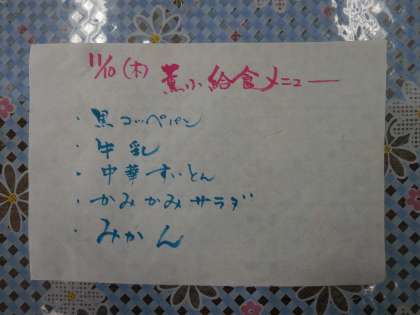 11/10(木) 薫小 給食メニュー
・黒コッペパン
・牛乳
・中華すいとん
・かみかみサラダ
・みかん